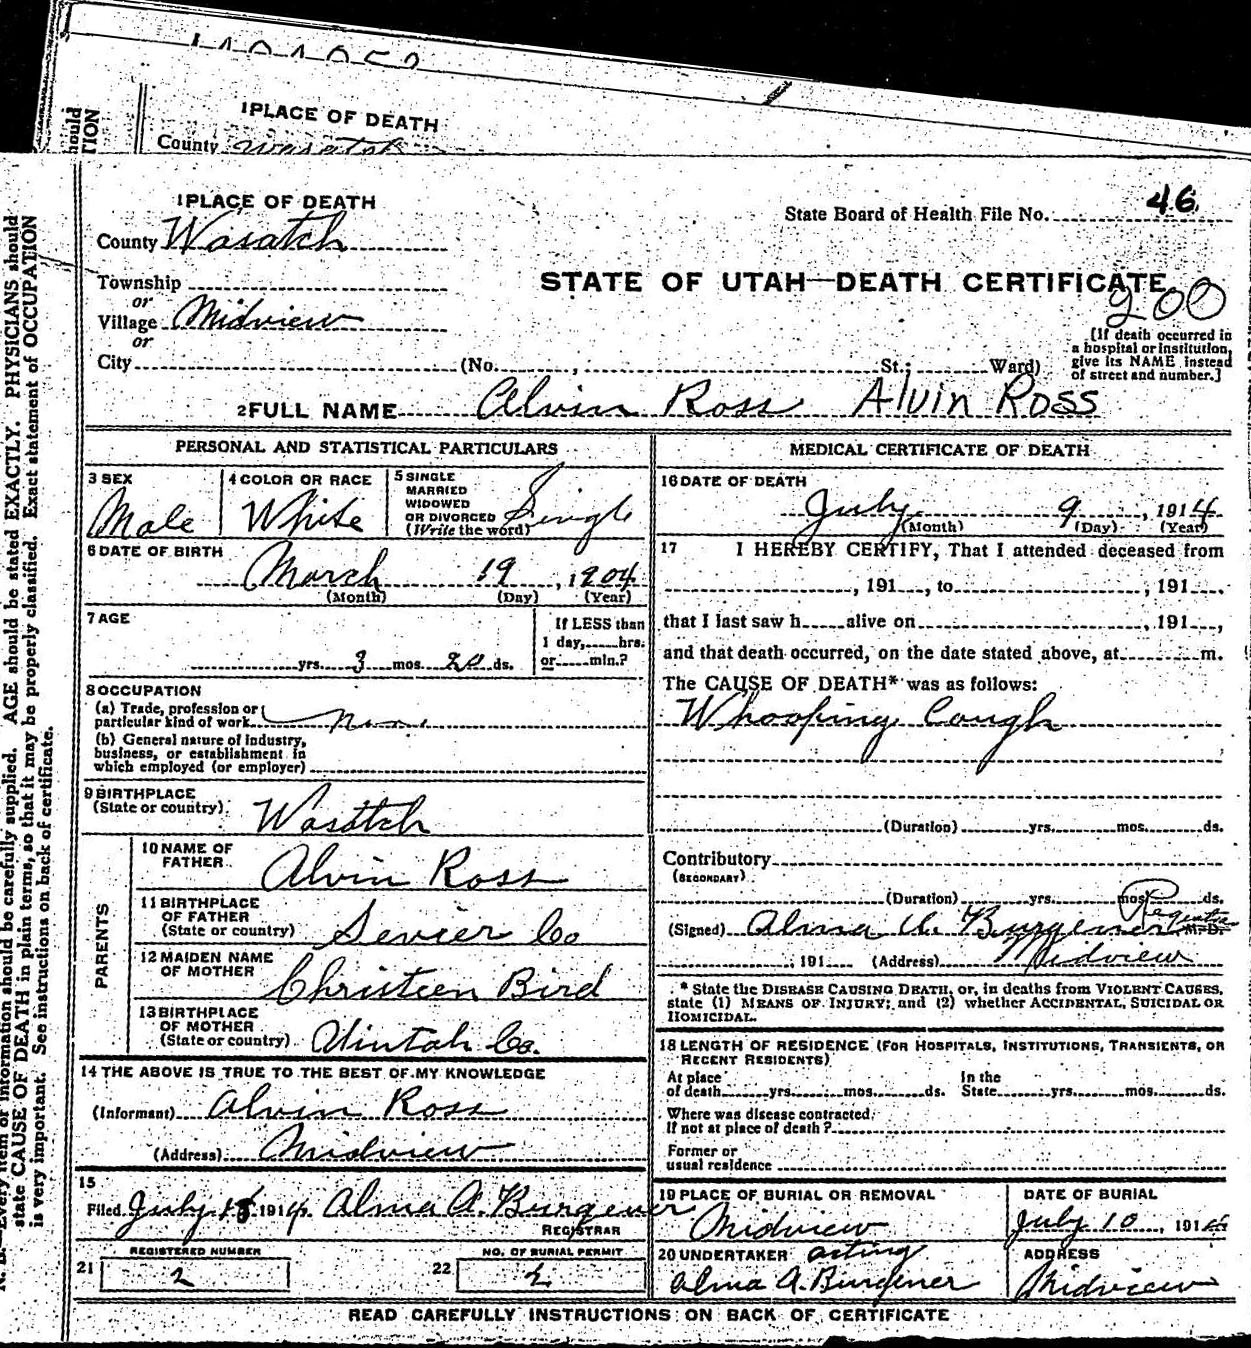 1 PLACE OF DEATH
County Wasatch
1 PLACE OF DEATH
County Wasatch
State Board of Health File No. 46
STATE OF UTAH—DEATH CERTIFICATE
200
Township
or
Village Midview
or
City (No. , St.; Ward)
[If death occurred in
a hospital or institution,
give its NAME instead
of street and number.]
2 FULL NAME Alvin Ross Alvin Ross
PERSONAL AND STATISTICAL PARTICULARS
3 SEX
Male
4 COLOR OR RACE
White
5 SINGLE
MARRIED
WIDOWED
OR DIVORCED
(Write the word)
Single
6 DATE OF BIRTH
March 19, 1904
(Month) (Day) (Year)
7 AGE
yrs. 3 mos. 20 ds.
If LESS than
1 day, hrs.
or min.?
8 OCCUPATION
(a) Trade, profession or
particular kind of work
(b) General nature of industry,
business, or establishment in
which employed (or employer)
9 BIRTHPLACE
(State or country) Wasatch
PARENTS
10 NAME OF
FATHER Alvin Ross
11 BIRTHPLACE
OF FATHER
(State or country) Sevier Co
12 MAIDEN NAME
OF MOTHER Christeen Bird
13 BIRTHPLACE
OF MOTHER
(State or country) Uintah Co.
14 THE ABOVE IS TRUE TO THE BEST OF MY KNOWLEDGE
(Informant) Alvin Ross
(Address) Midview
15
Filed July 1914 Alma A. Burgener
REGISTRAR
21 REGISTERED NUMBER
2
22 NO. OF BURIAL PERMIT
2
MEDICAL CERTIFICATE OF DEATH
16 DATE OF DEATH
July 9, 1914
(Month) (Day) (Year)
17 I HEREBY CERTIFY, That I attended deceased from
, 191 , to , 191 ,
that I last saw h alive on , 191 ,
and that death occurred, on the date stated above, at m.
The CAUSE OF DEATH* was as follows:
Whooping Cough
(Duration) yrs. mos. ds.
Contributory
(SECONDARY)
(Duration) yrs. mos. ds.
(Signed) Alma A. Burgener Registrar M.D.
, 191 (Address) Midview
* State the DISEASE CAUSING DEATH, or, in deaths from VIOLENT CAUSES,
state (1) MEANS OF INJURY; and (2) whether ACCIDENTAL, SUICIDAL OR
HOMICIDAL.
18 LENGTH OF RESIDENCE (FOR HOSPITALS, INSTITUTIONS, TRANSIENTS, OR
RECENT RESIDENTS)
At place
of death yrs. mos. ds.
In the
State yrs. mos. ds.
Where was disease contracted,
if not at place of death?
Former or
usual residence
19 PLACE OF BURIAL OR REMOVAL
Midview
DATE OF BURIAL
July 10, 1914
20 UNDERTAKER acting
Alma A. Burgener
ADDRESS
Midview
READ CAREFULLY INSTRUCTIONS ON BACK OF CERTIFICATE
Every item of information should be carefully supplied. AGE should be stated EXACTLY. PHYSICIANS should
state CAUSE OF DEATH in plain terms, so that it may be properly classified. Exact statement of OCCUPATION
is very important. See instructions on back of certificate.